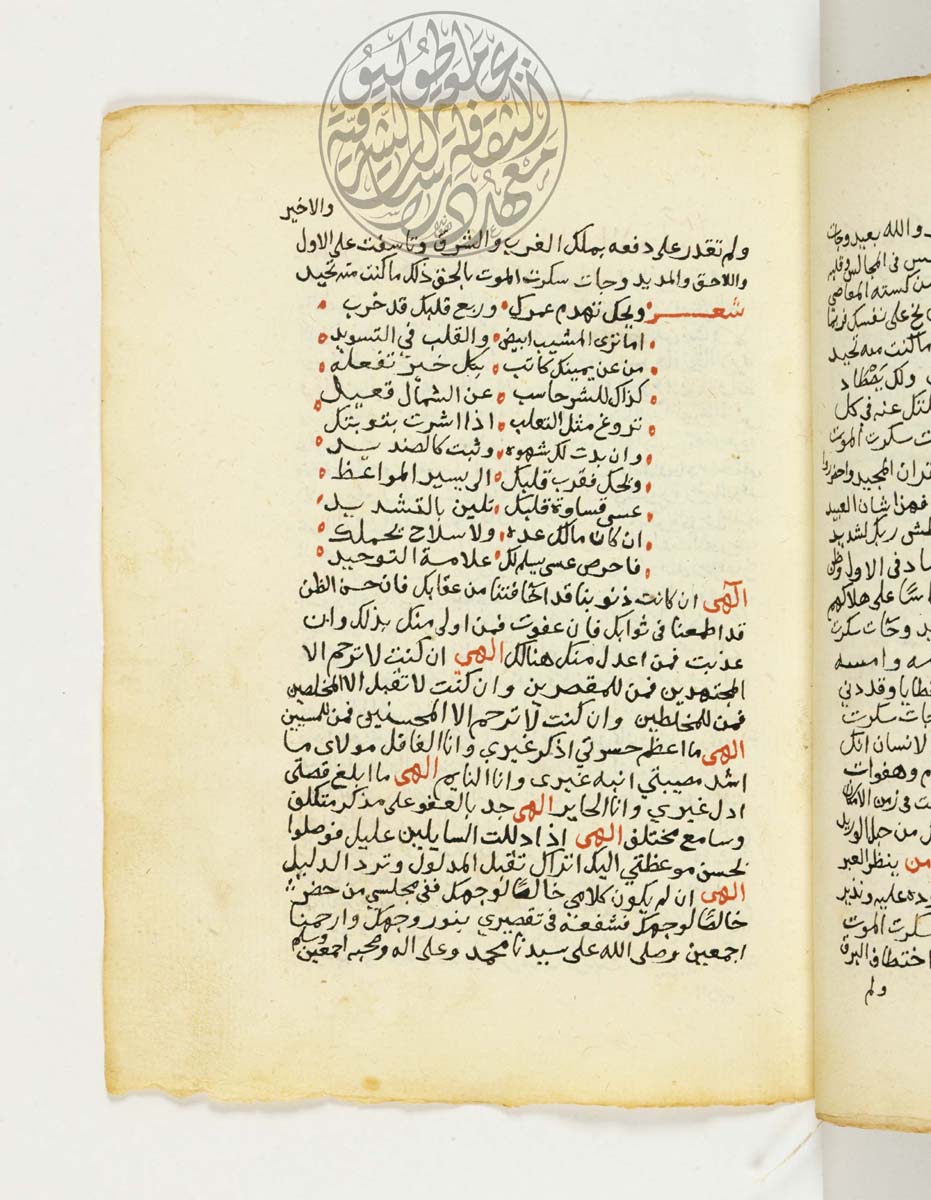 والاخير
ولم تقدر على دفعه بملك الغرب والشرق وتاسفت على الاول
واللاحق والمديد وجات سكرت الموت بالحق ذلك ما كنت منه تحيد
شعر ويحك تهدم عمرك وربع قلبك قد خرب
اما ترى المشيب ابيض والقلب في التسويد
من عن يمينك كاتب بكل خير تفعله
كذاك للشر حاسب عن الشمال قعيد
تروغ مثل الثعلب اذا اشرت بتوبتك
وان بدت لك شهوه وثبت كالصنديد
ويحك فقرب قلبك الى يسير المواعظ
عسى قساوة قلبك تلين بالتشديد
ان كان مالك عده ولا سلاح يحملك
فاحرص عسى يسلم لك علامة التوحيد
الهي ان كانت ذنوبنا قد اخافتنا من عقابك فان حسن الظن
قد اطمعنا في ثوابك فان عفوت فمن اولى منك بذلك وان
عذبت فمن اعدل منك هنالك الهي ان كنت لا ترحم الا
المجتهدين فمن للمقصرين وان كنت لا تقبل الا المخلصين
فمن للمخلطين وان كنت لا ترحم الا المحسنين فمن للمسيين
الهي ما اعظم حسرتي اذكر غيري وانا الغافل مولاى ما
اشد مصيبتي انبه غيرى وانا النايم الهي ما ابلغ قصتى
ادل غيري وانا الحاير الهي جد بالعفو على مذكر متكلف
وسامع مختلف الهي اذا دللت السايلين عليك فوصلوا
بحسن موعظتي اليك اتراك تقبل المدلول وترد الدليل
الهي ان لم يكون كلامي خالصا لوجهك ففي مجلسي من حضر
خالصا لوجهك فشفعه في تقصيري بنور وجهك وارحمنا
اجمعين وصلى الله على سيدنا محمد وعلى اله وصحبه وسلم اجمعين
والله بعيد وجات
في المجالس وقلبه
كسته المعاصي
على نفسك
ما كنت منه تحيد
عنه في كل
سكرت الموت
المجيد واحذروا
فهذا شان العبيد
بطش ربك لشديد
في الاول
على هلاكهم
وجات سكرت
وامسه
جات سكرت
الانسان انك
وهفوات
في زمن الامكان
من حبل الوريد
من ينظر العبر
عليه ونذير
سكرت الموت
اختطاف البرق
ولم
معهد الثقافة والدراسات الشرقية